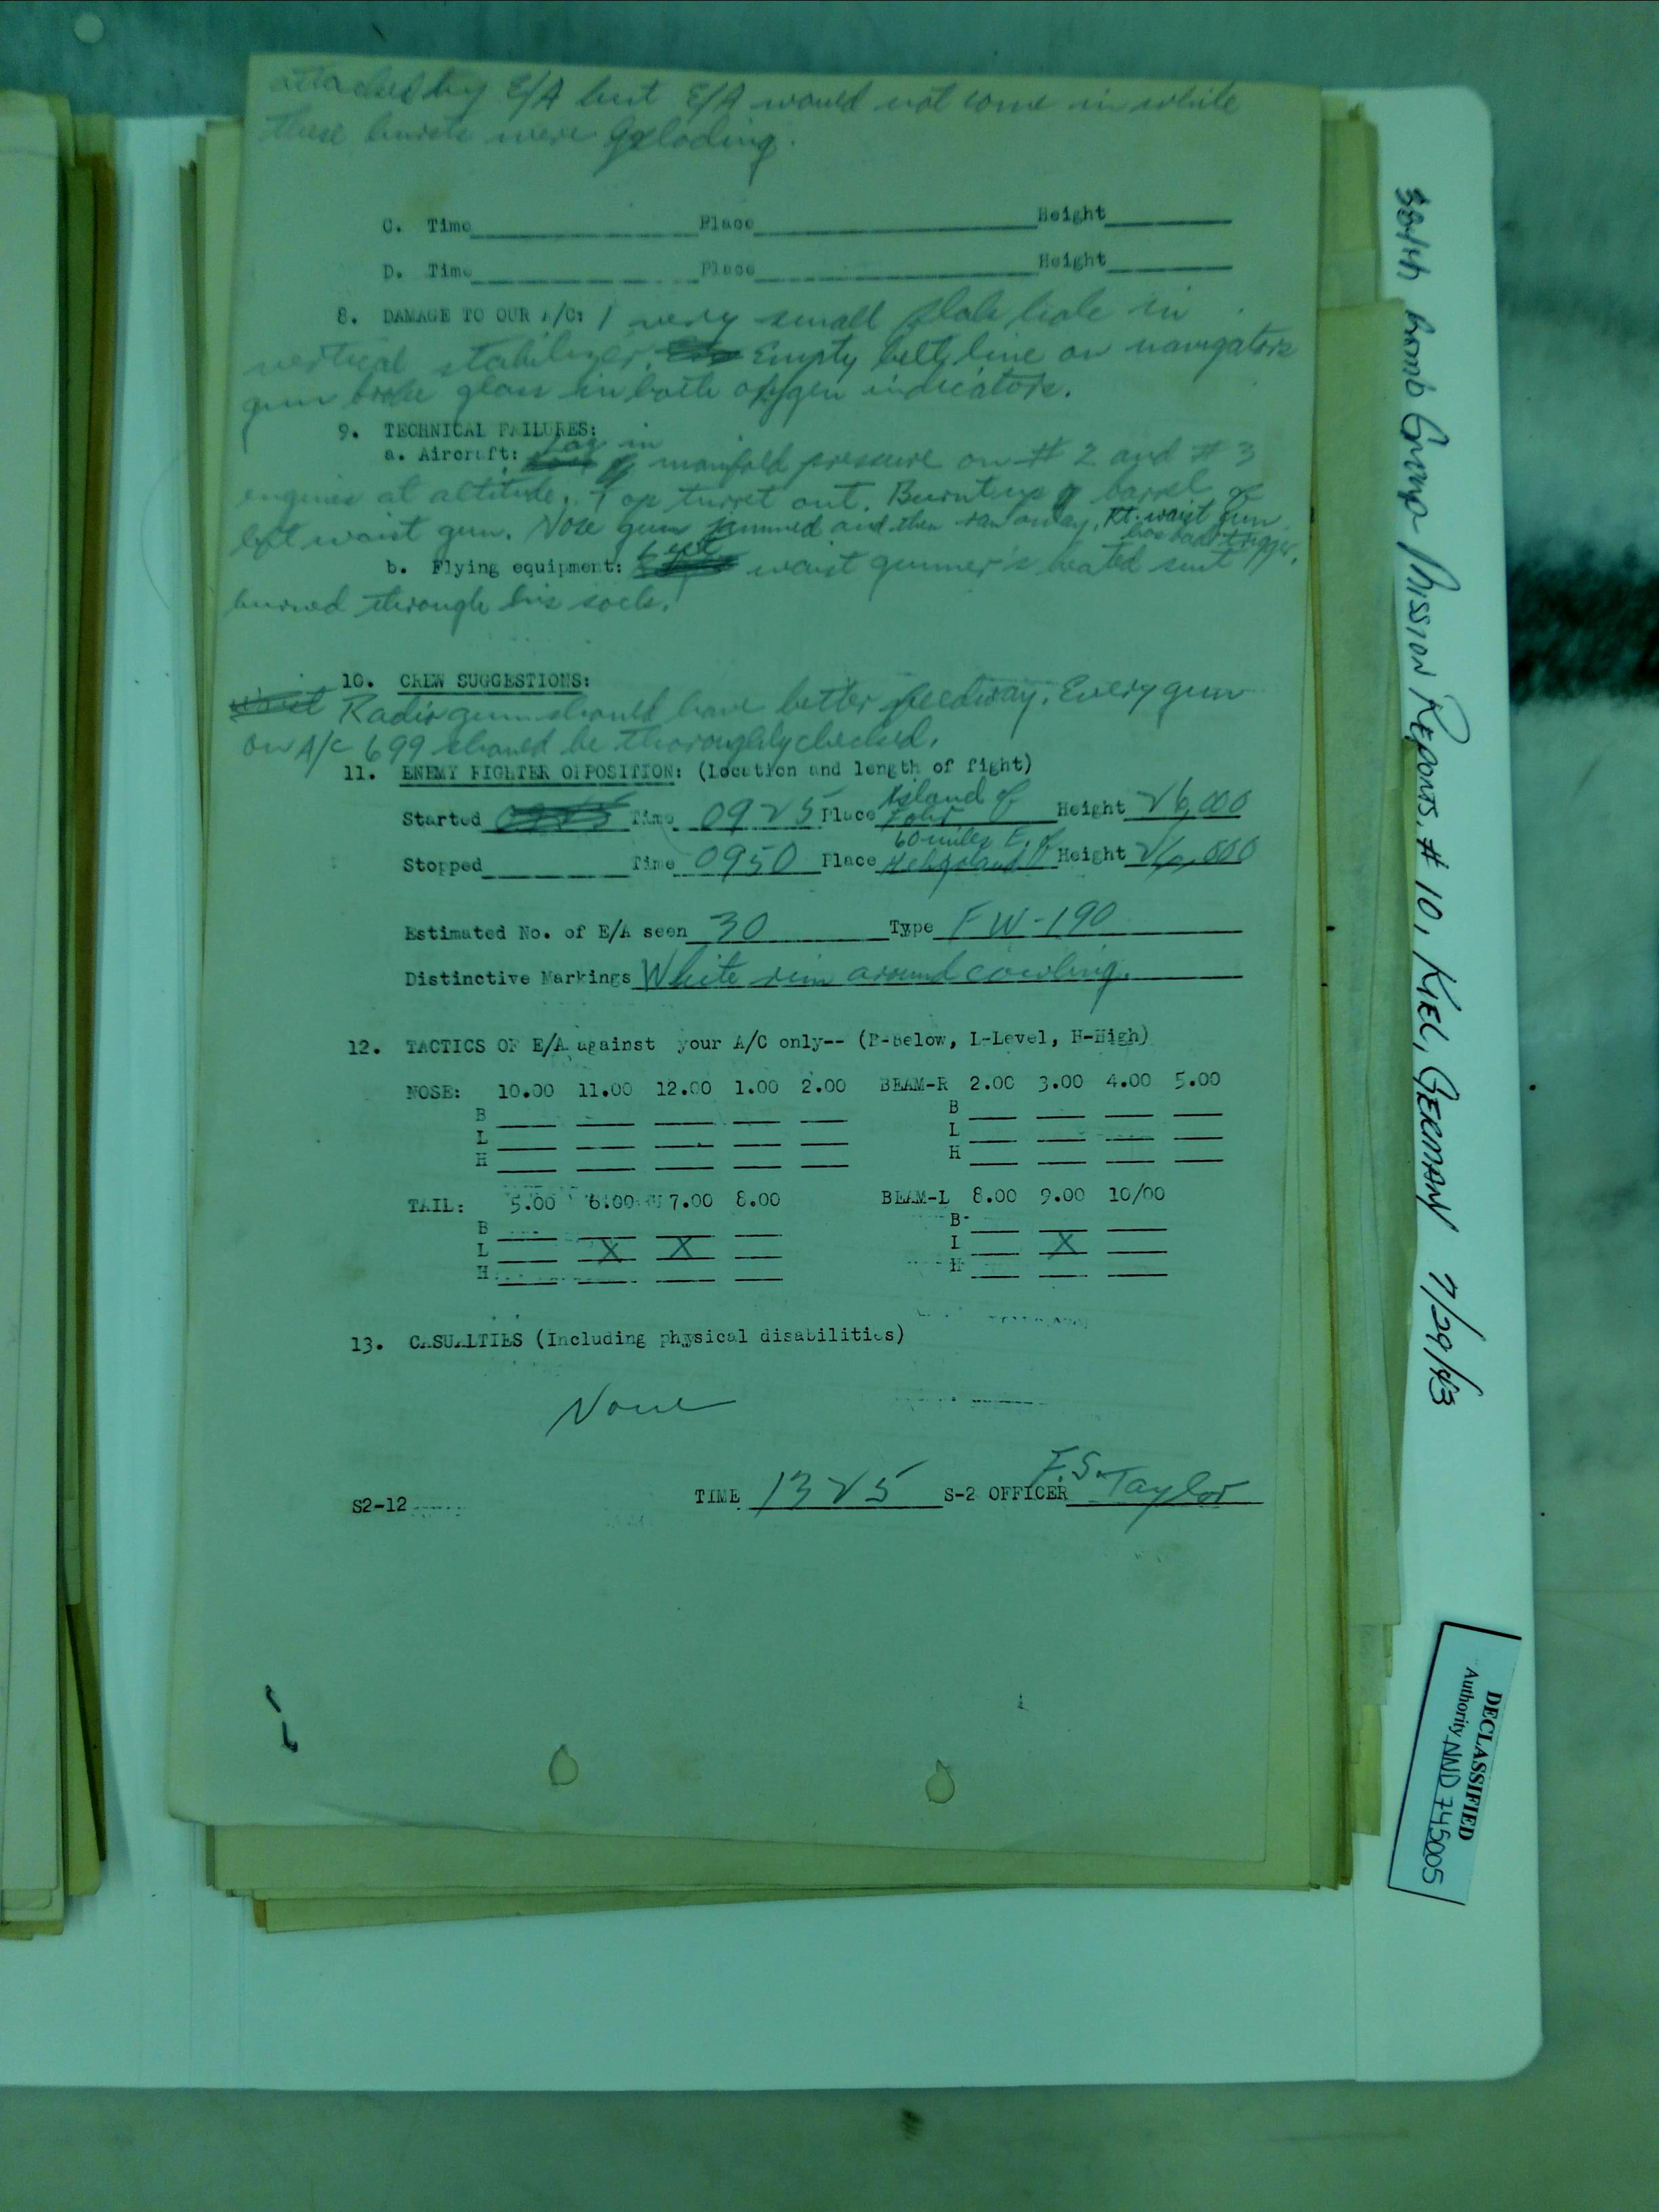 attacked by E/A but E/A would not come in while
these bursts were exploding.
C. Time Place Height
D. Time Place Height
8. DAMAGE TO OUR A/C: 1 very small flak hole in
vertical stabilizer. Empty belt line on navigators
gun broke glass in both oxygen indicators.
9. TECHNICAL FAILURES:
a. Aircraft: Lag in manifold pressure on # 2 and # 3
engines at altitude. Top turret out. Burnt up barrel of
left waist gun. Nose gun jammed and then ran away. Rt. waist gun
has bad trigger.
b. Flying equipment: Left waist gunner's heated suit
burned through his sock.
10. CREW SUGGESTIONS:
Radio gun should have better feedway. Every gun
on A/C 699 should be thoroughly checked.
11. ENEMY FIGHTER OPPOSITION: (Location and length of fight)
Started Time 0925 Place Island of Fohr Height 26,000
Stopped Time 0950 Place 60 miles E. of Helgoland Height 26,000
Estimated No. of E/A seen 30 Type FW-190
Distinctive Markings White rim around cowling.
12. TACTICS OF E/A against your A/C only-- (B-Below, L-Level, H-High)
NOSE: 10.00 11.00 12.00 1.00 2.00 BEAM-R 2.00 3.00 4.00 5.00
B B
L L
H H
TAIL: 5.00 6.00 7.00 8.00 BEAM-L 8.00 9.00 10/00
B B
L X X L X
H H
13. CASUALTIES (Including physical disabilities)
None
S2-12 TIME 1325 S-2 OFFICER F.S. Taylor
384th Bomb Group Mission Reports, # 10, KIEL, GERMAN 7/29/43
DECLASSIFIED
Authority NND 745005